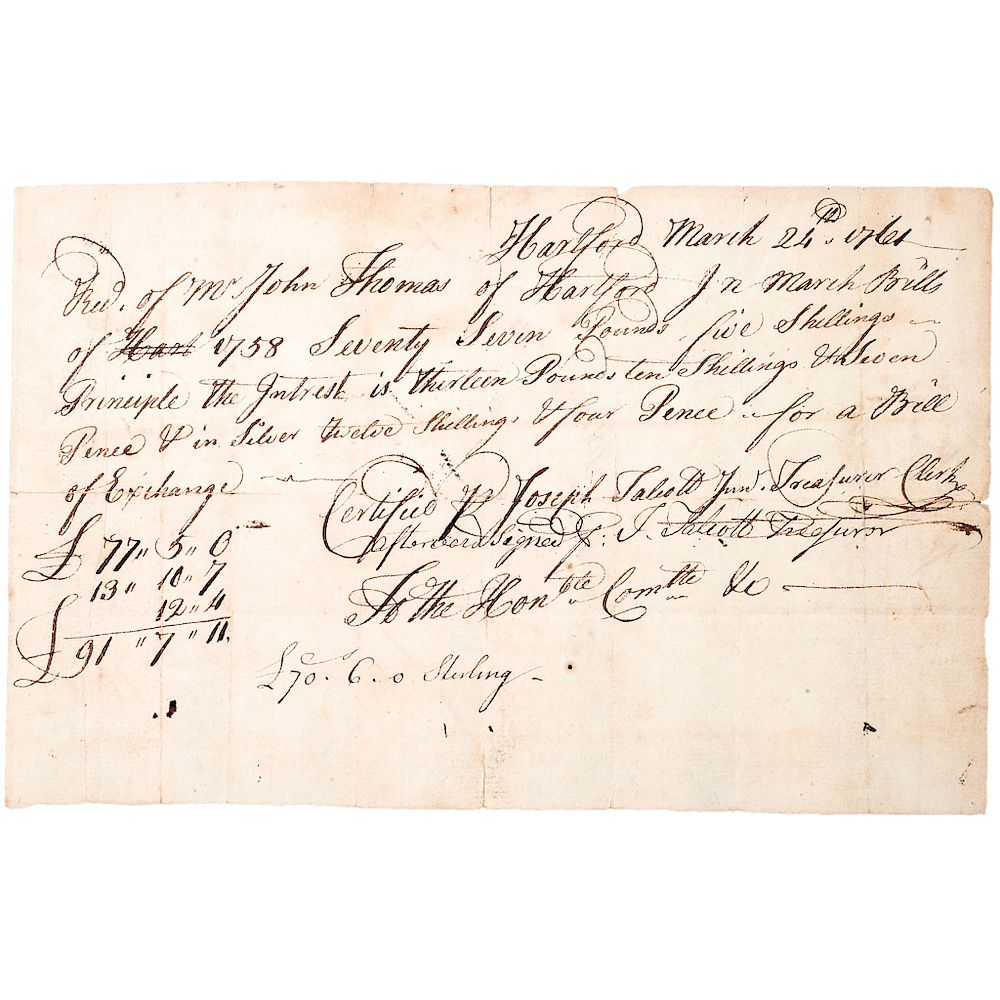 Hartford March 24th. 1761
Recd. of Mr John Thomas of Hartford In March Bills
of Hart 1758 Seventy Seven Pounds five Shellings
Principle the Intrest is thirteen Pounds ten Shellings & Seven
Pence & in Silver twelve Shellings & four Pence for a Bill
of Exchange
Certified Pr Joseph Talcott Junr. Treasurer Clerk
afterward Signed Pr. J. Talcott Treasuror
To the Honble Comtte &c
£ 77 " 5 " 0
13 " 10 " 7
12 " 4
£ 91 " 7 " 11.
£70. 6. 0 Sterling